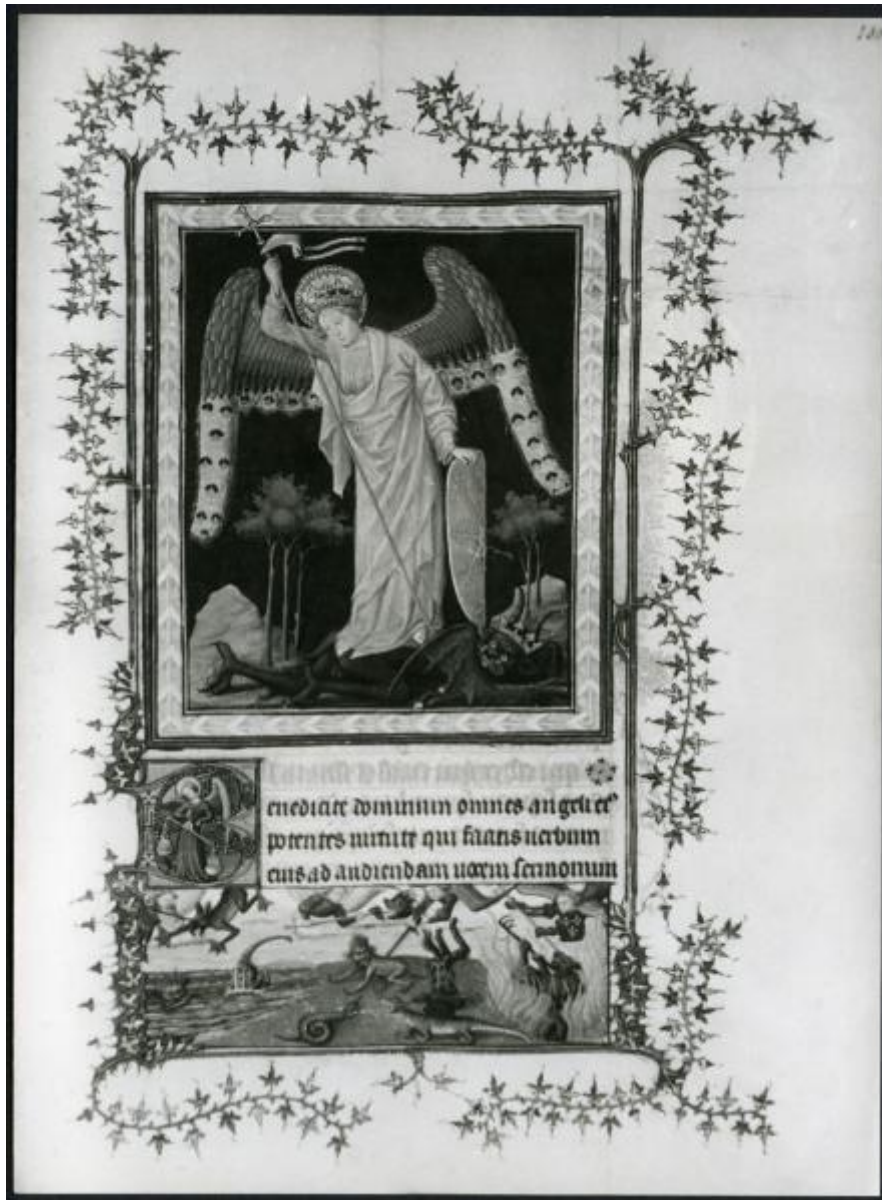 Benedicite dominum omnes angeli eꝰ
potentes uirtute qui facitis uerbum
eius ad audiendam uocem sermonum